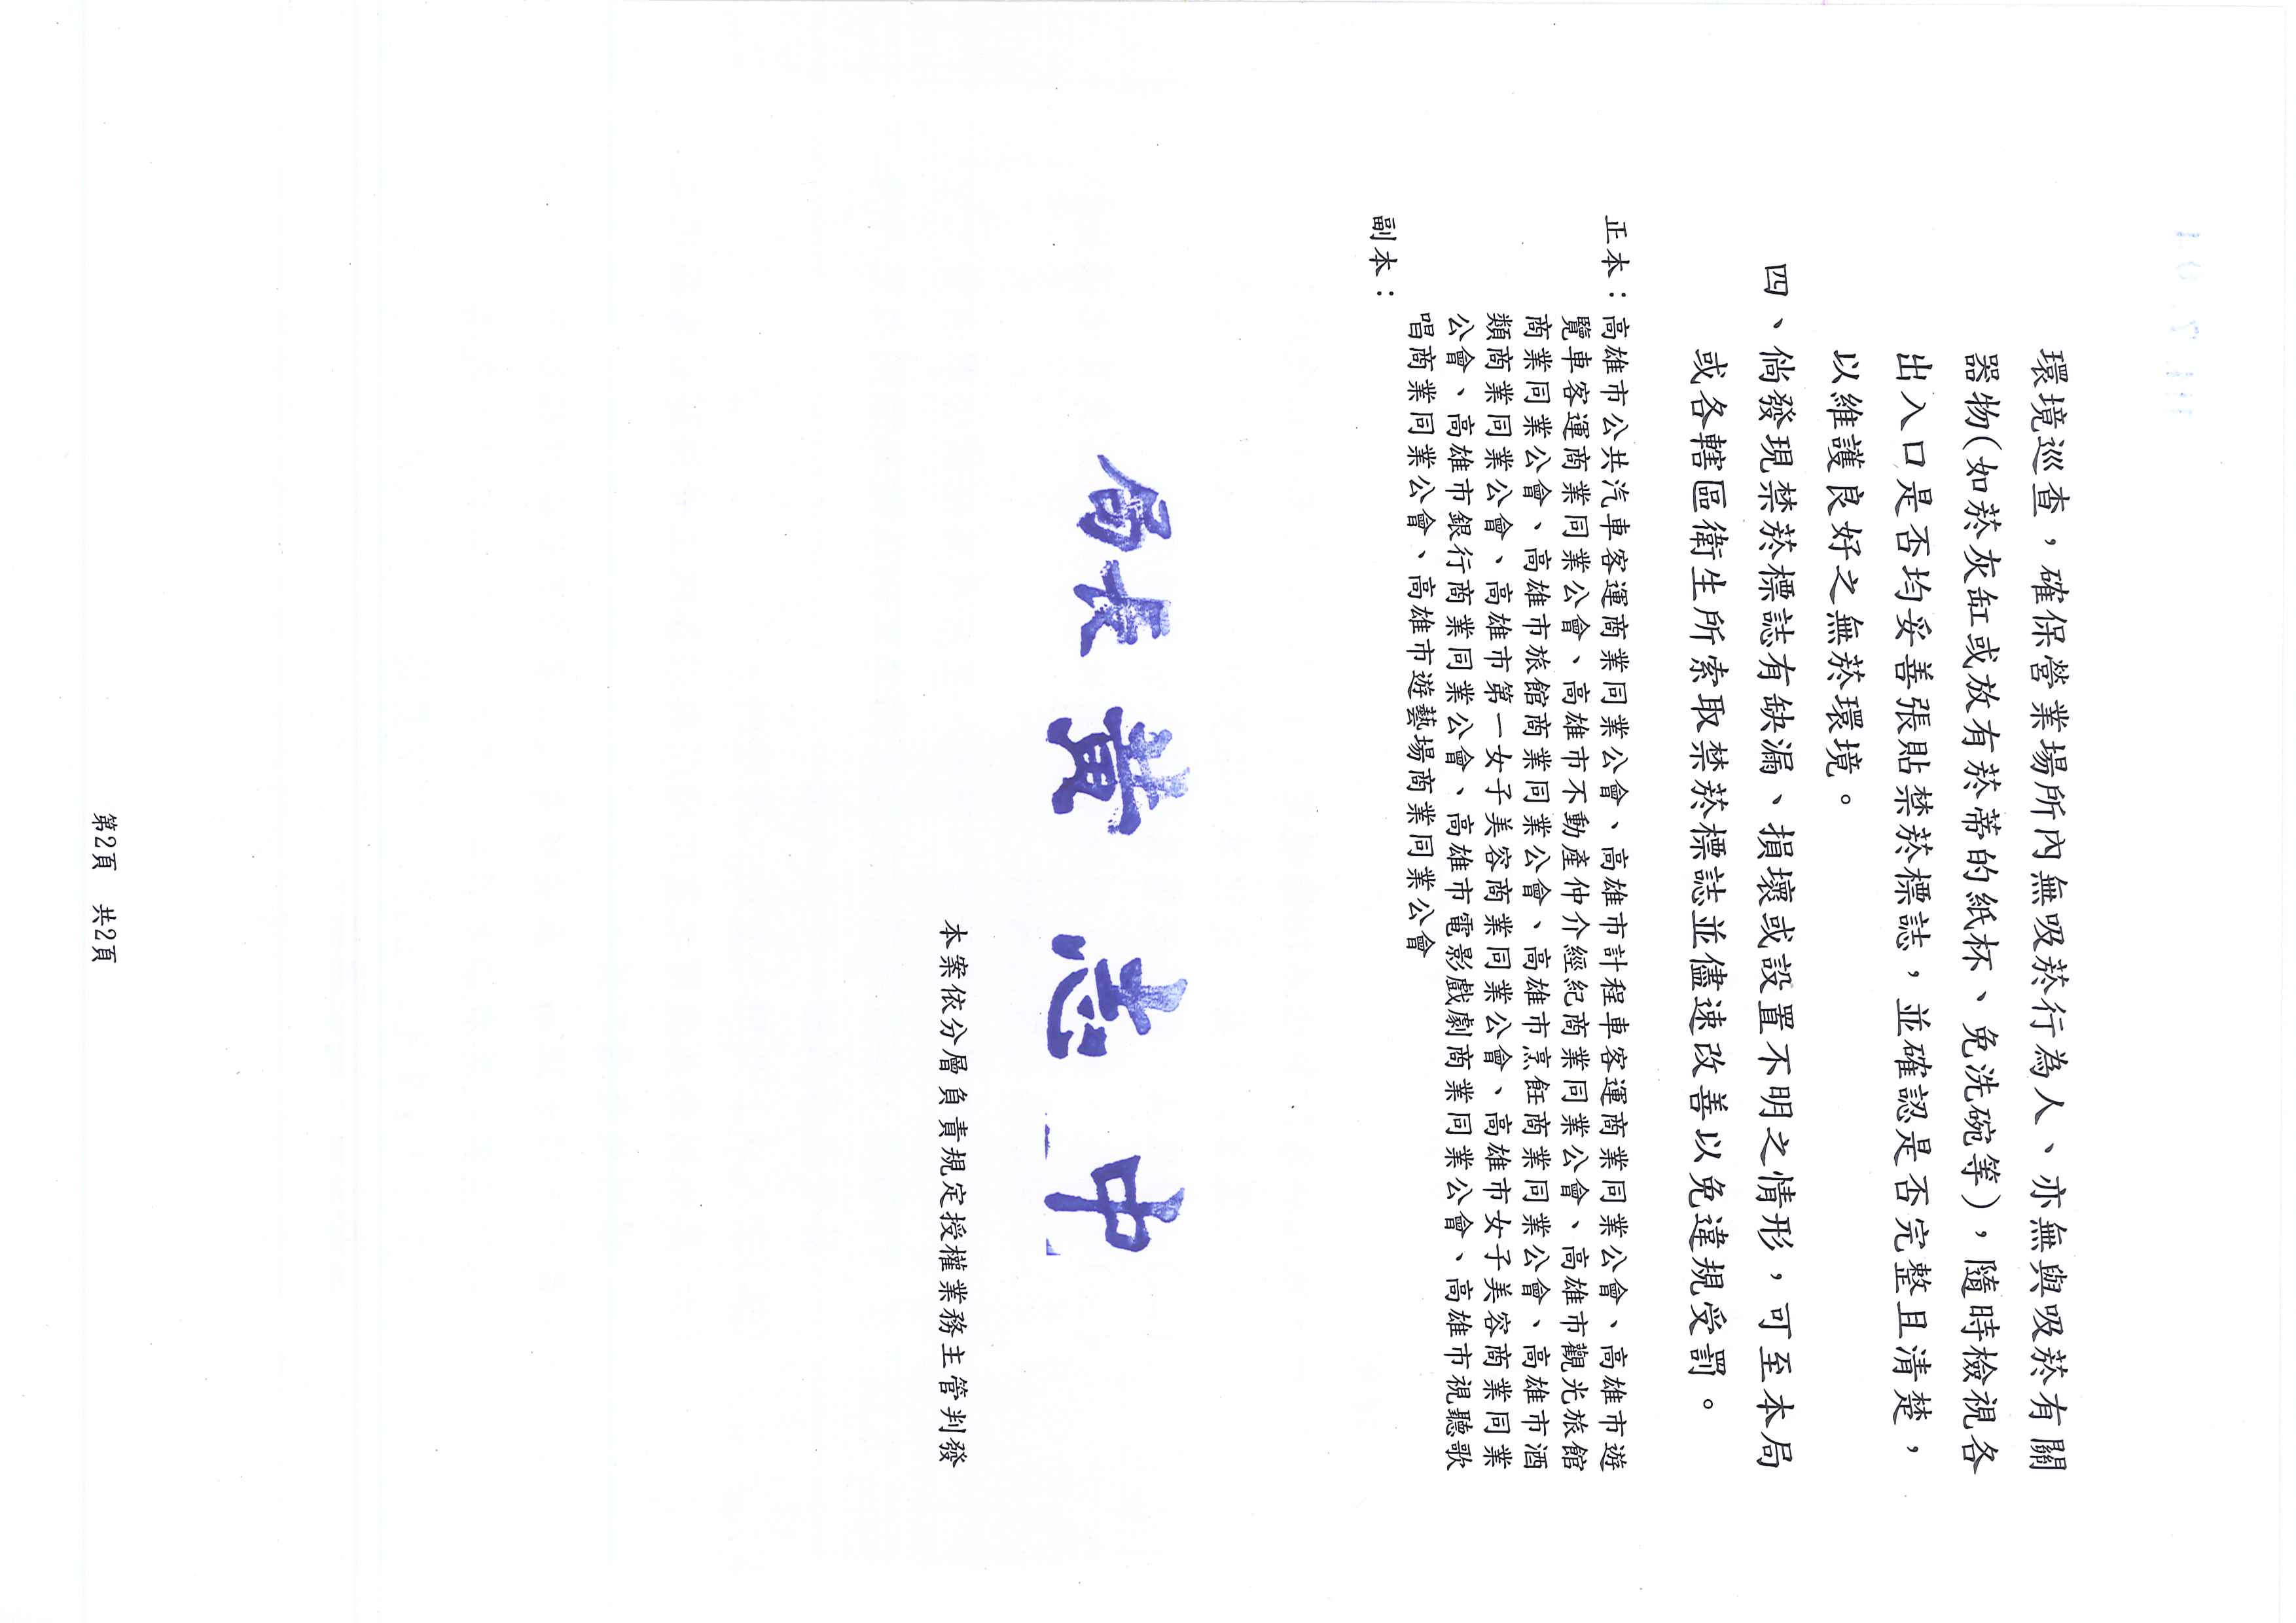 環境巡查，確保營業場所內無吸菸行為人、亦無與吸菸有關
器物(如菸灰缸或放有菸蒂的紙杯、免洗碗等)，隨時檢視各
出入口是否均妥善張貼禁菸標誌，並確認是否完整且清楚，
以維護良好之無菸環境。
四、倘發現禁菸標誌有缺漏、損壞或設置不明之情形，可至本局
或各轄區衛生所索取禁菸標誌並儘速改善以免違規受罰。
正本：高雄市公共汽車客運商業同業公會、高雄市計程車客運商業同業公會、高雄市遊
覽車客運商業同業公會、高雄市不動產仲介經紀商業同業公會、高雄市觀光旅館
商業同業公會、高雄市旅館商業同業公會、高雄市烹飪商業同業公會、高雄市酒
類商業同業公會、高雄市第一女子美容商業同業公會、高雄市女子美容商業同業
公會、高雄市銀行商業同業公會、高雄市電影戲劇商業同業公會、高雄市視聽歌
唱商業同業公會、高雄市遊藝場商業同業公會
副本：
局長黃志中
本案依分層負責規定授權業務主管判發
第2頁 共2頁